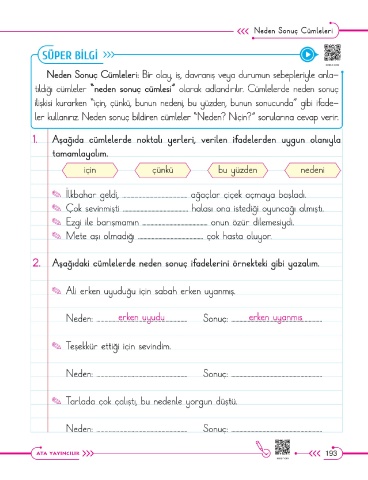 Neden Sonuç Cümleleri
SÜPER BİLGİ
Neden Sonuç Cümleleri: Bir olay, iş, davranış veya durumun sebepleriyle anla-
tıldığı cümleler "neden sonuç cümlesi" olarak adlandırılır. Cümlelerde neden sonuç
ilişkisi kurarken "için, çünkü, bunun nedeni, bu yüzden, bunun sonucunda" gibi ifade-
ler kullanırız. Neden sonuç bildiren cümleler "Neden? Niçin?" sorularına cevap verir.
1. Aşağıda cümlelerde noktalı yerleri, verilen ifadelerden uygun olanıyla
tamamlayalım.
için çünkü bu yüzden nedeni
İlkbahar geldi, .................... ağaçlar çiçek açmaya başladı.
Çok sevinmişti .................... halası ona istediği oyuncağı almıştı.
Ezgi ile barışmamın .................... onun özür dilemesiydi.
Mete aşı olmadığı .................... çok hasta oluyor.
2. Aşağıdaki cümlelerde neden sonuç ifadelerini örnekteki gibi yazalım.
Ali erken uyuduğu için sabah erken uyanmış.
Neden: erken uyudu Sonuç: erken uyanmış
Teşekkür ettiği için sevindim.
Neden: .................... Sonuç: ....................
Tarlada çok çalıştı, bu nedenle yorgun düştü.
Neden: .................... Sonuç: ....................
ATA YAYINCILIK 193